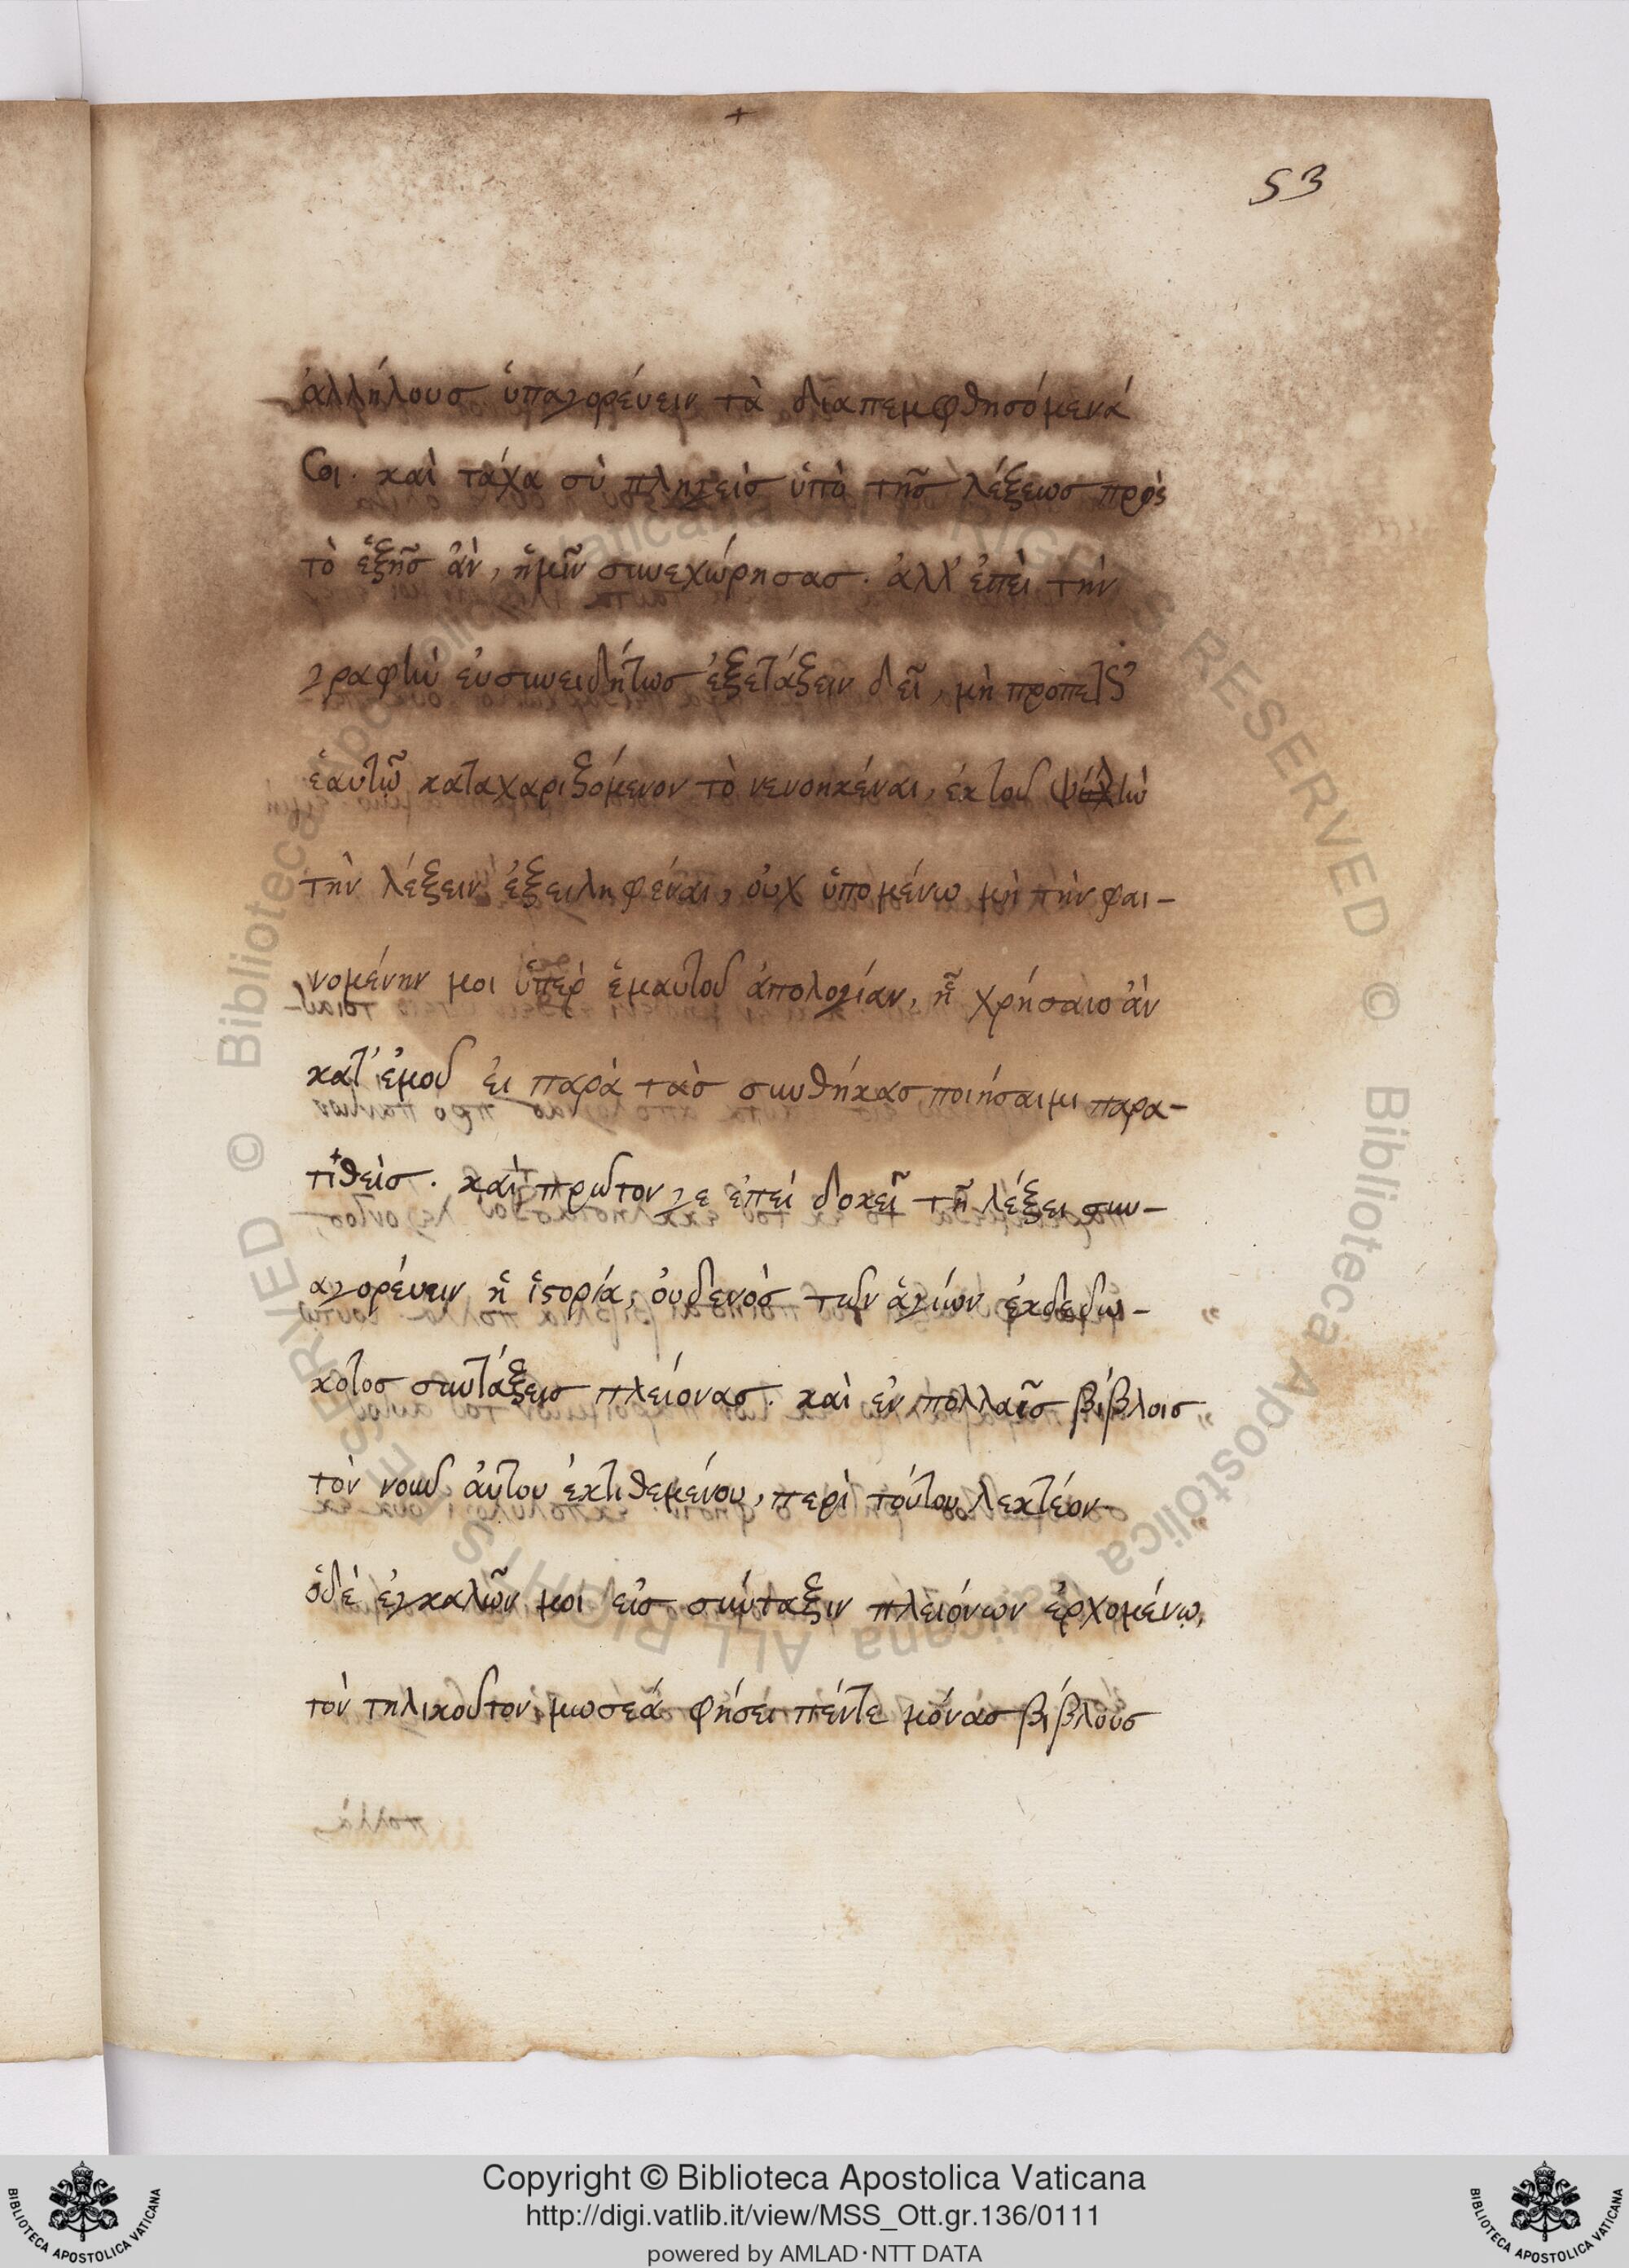 +
53
ἀλλήλουσ ὑπαγορέυειν τὰ διαπεμφθησόμενά
σοι. καὶ τάχα σὺ πληγεὶσ ὑπὸ τῆσ λέξεωσ πρὸς
τὸ ἑξῆσ ἂν, ἡμῖν συνεχώρησασ. ἀλλ' ἐπεὶ τὴν
γραφὴν ἐυσυνειδήτωσ ἐξετάζειν δεῖ, μὴ προπετῶς
ἑαυτῷ καταχαριζόμενον τὸ νενοηκέναι, ἐκ τοῦ ψιλὴν
τὴν λέξειν ἐξειληφέναι, οὐχ ὑπομένω μὴ τὴν φαι-
νομένην μοι ὑπὲρ ἐμαυτοῦ ἀπολογίαν, ἧ χρήσαιο ἂν
κατ' ἐμοῦ ἐι παρὰ τὰσ συνθήκασ ποιήσαιμι παρα-
τιθεὶσ. καὶ πρῶτον γε ἐπεί δοκεῖ τῆ λέξει συν-
αγορέυειν ἡ ἱστορία, ὀυδενὸσ τῶν ἁγίων ἐκδεδω-
κότοσ συντάξεισ πλείονασ. καὶ ἐν πολλαῖσ βίβλοισ
τὸν νοῦν ἀυτου ἐκτιθεμένου, περὶ τόυτου λεκτέον
ὁδὲ ἐγκαλῶν μοι εἰσ σύνταξιν πλειόνων ἐρχομένῳ,
τὸν τηλικοῦτον μωσεά φήσει πέντε μόνασ βίβλουσ
Copyright © Biblioteca Apostolica Vaticana
http://digi.vatlib.it/view/MSS_Ott.gr.136/0111
powered by AMLAD·NTT DATA
BIBLIOTECA APOSTOLICA VATICANA
BIBLIOTECA APOSTOLICA VATICANA
© Biblioteca Apostolica Vaticana ALL RIGHTS RESERVED © Biblioteca Apostolica Vaticana ALL RIGHTS RESERVED